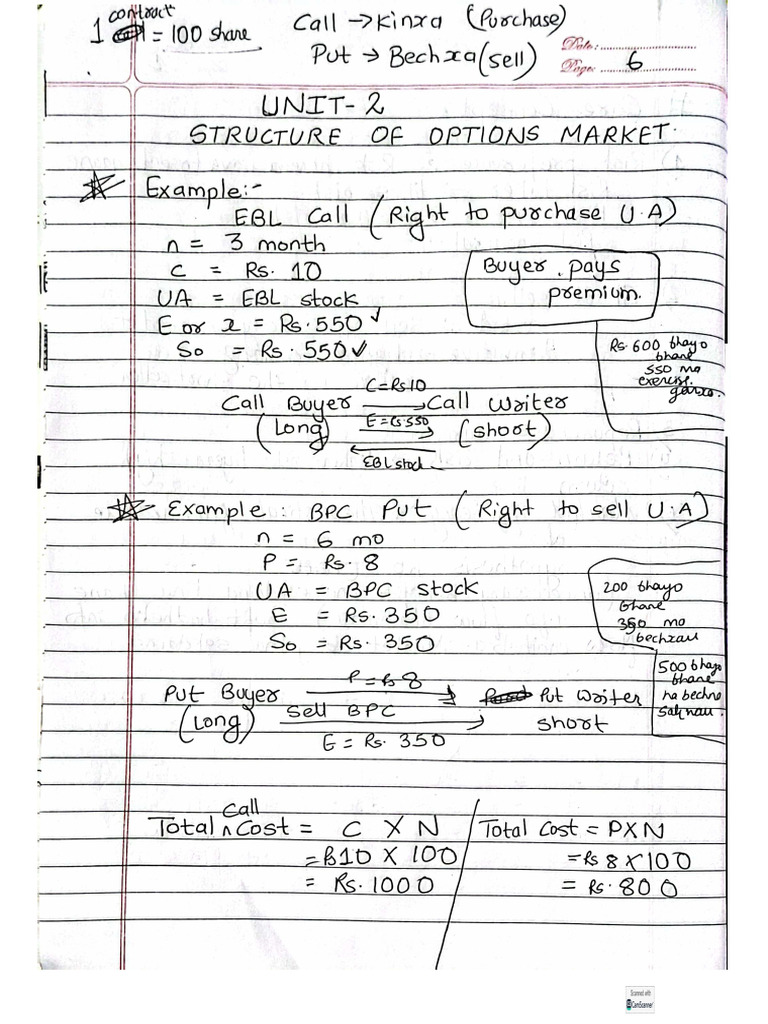 contract
1 = 100 share
Call → Kinxa (Purchase)
Put → Bechxa (sell)
Date:
Page: 6
UNIT-2
STRUCTURE OF OPTIONS MARKET.
Example:-
EBL Call (Right to purchase U.A)
n = 3 month
C = Rs. 10
UA = EBL stock
E or x = Rs. 550 ✓
So = Rs. 550 ✓
Buyer pays
premium.
Rs. 600 bhayo
bhane
550 ma
exercise
garxa.
C = Rs 10
Call Buyer → Call Writer
E = Rs 550
(Long) (short)
EBL stock
Example: BPC Put (Right to sell U.A)
n = 6 mo
P = Rs. 8
UA = BPC stock
E = Rs. 350
So = Rs. 350
200 bhayo
bhane
350 ma
bechxau
500 bhayo
bhane
na bechna
saknau.
P = Rs 8
Put Buyer → Put Writer
(Long) Sell BPC → short
E = Rs. 350
Call
Total ^ Cost = C X N
= Rs 10 X 100
= Rs. 1000
Total Cost = P X N
= Rs 8 X 100
= Rs. 800
Scanned with
CamScanner